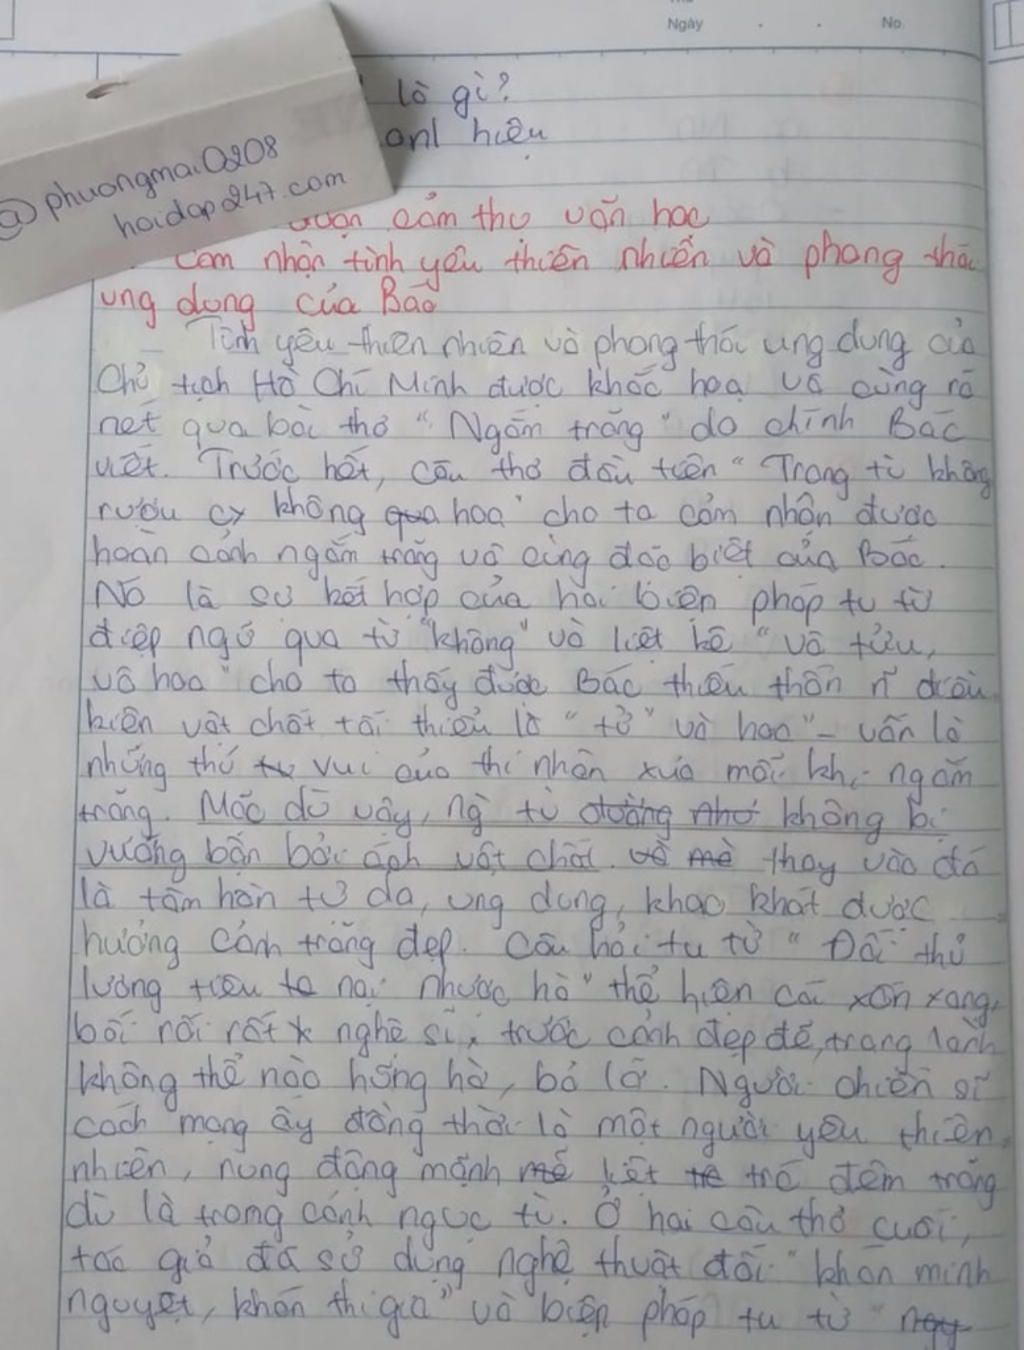 Ngày . . No.
là gì?
hiệu
@phuongmai0208
hoidap247.com
cảm thụ văn học
Cảm nhận tình yêu thiên nhiên và phong thái
ung dung của Bác
Tình yêu thiên nhiên và phong thái ung dung của
Chủ tịch Hồ Chí Minh được khắc hoạ vô cùng rõ
nét qua bài thơ "Ngắm trăng" do chính Bác
viết. Trước hết, câu thơ đầu tiên "Trong tù không
rượu cx không qua hoa" cho ta cảm nhận được
hoàn cảnh ngắm trăng vô cùng đặc biệt của Bác.
Nó là sự kết hợp của hai biện pháp tu từ
điệp ngữ qua từ "không" và liệt kê "vô tửu,
vô hoa" cho ta thấy được Bác thiếu thốn n~ điều
kiện vật chất tối thiểu là "tử" và hoa" - vốn là
những thứ vui của thi nhân xưa mỗi khi ngắm
trăng. Mặc dù vậy, ng` tù dường như không bị
vướng bận bởi ách vật chất. về mà thay vào đó
là tâm hồn tự do, ung dung, khao khát được
hưởng cảnh trăng đẹp. Câu hỏi tu từ "Đối thử
lương tiêu nại nhược hà" thể hiện cái xốn xang,
bối rối rất nghệ sĩ, trước cảnh đẹp đẽ, trong lành
không thể nào hững hờ, bỏ lỡ. Người chiến sĩ
cách mạng ấy đồng thời là một người yêu thiên
nhiên, rung động mãnh mẽ liệt trước đêm trăng
dù là trong cảnh ngục tù. Ở hai câu thơ cuối,
tác giả đã sử dụng nghệ thuật đối "khán minh
nguyệt, khán thi gia" và biện pháp tu từ "ngy